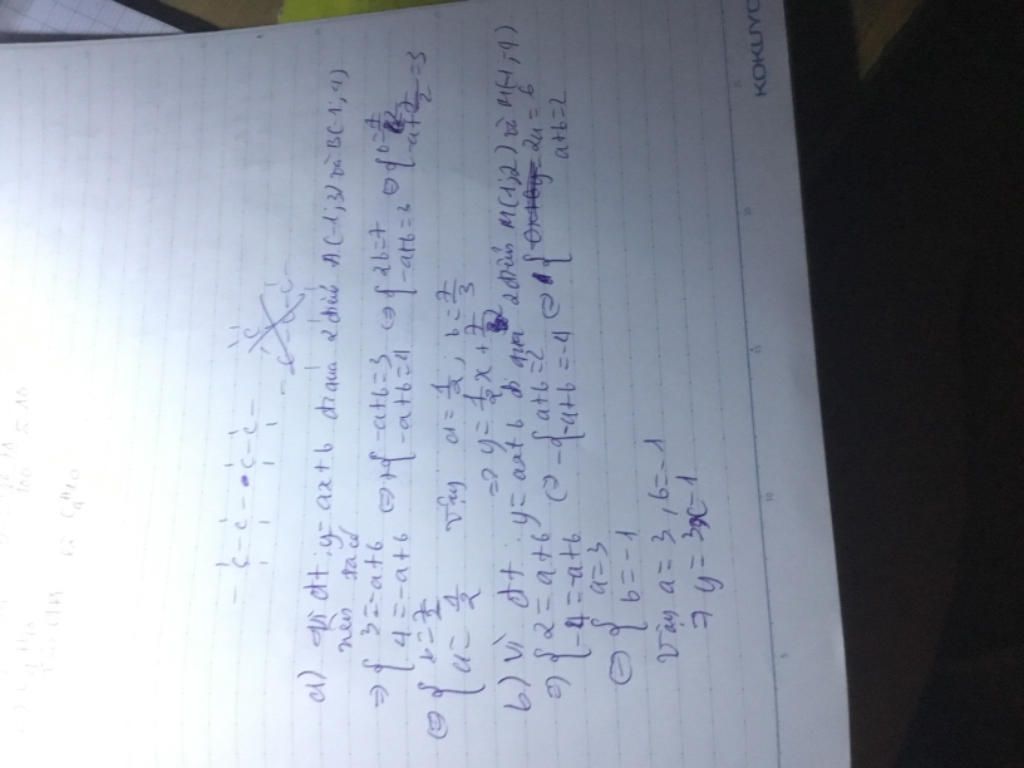 - C - C - C - C -
a) Vì đt y = ax + b đi qua 2 điểm A(-1; 3) và B(-1; 4)
nên ta có
⇒ { 3 = -a + b ⇔ + { -a + b = 3 ⇔ { 2b = 7 ⇔ { b = 7/2
4 = -a + b -a + b = 4 -a + b = 3 -a + 7/2 = 3
⇔ { b = 7/2
a = 1/2 Vậy a = 1/2, b = 7/3
⇒ y = 1/2 x +
b) Vì đt y = ax + b đi qua 2 điểm M(1; 2) và N(-1; -4)
⇒ { 2 = a + b ⇔ - { a + b = 2 ⇔ { 2a = 6
-4 = -a + b -a + b = -4 a + b = 2
⇔ { a = 3
b = -1
Vậy a = 3, b = -1
⇒ y = 3x - 1
KOKUYO